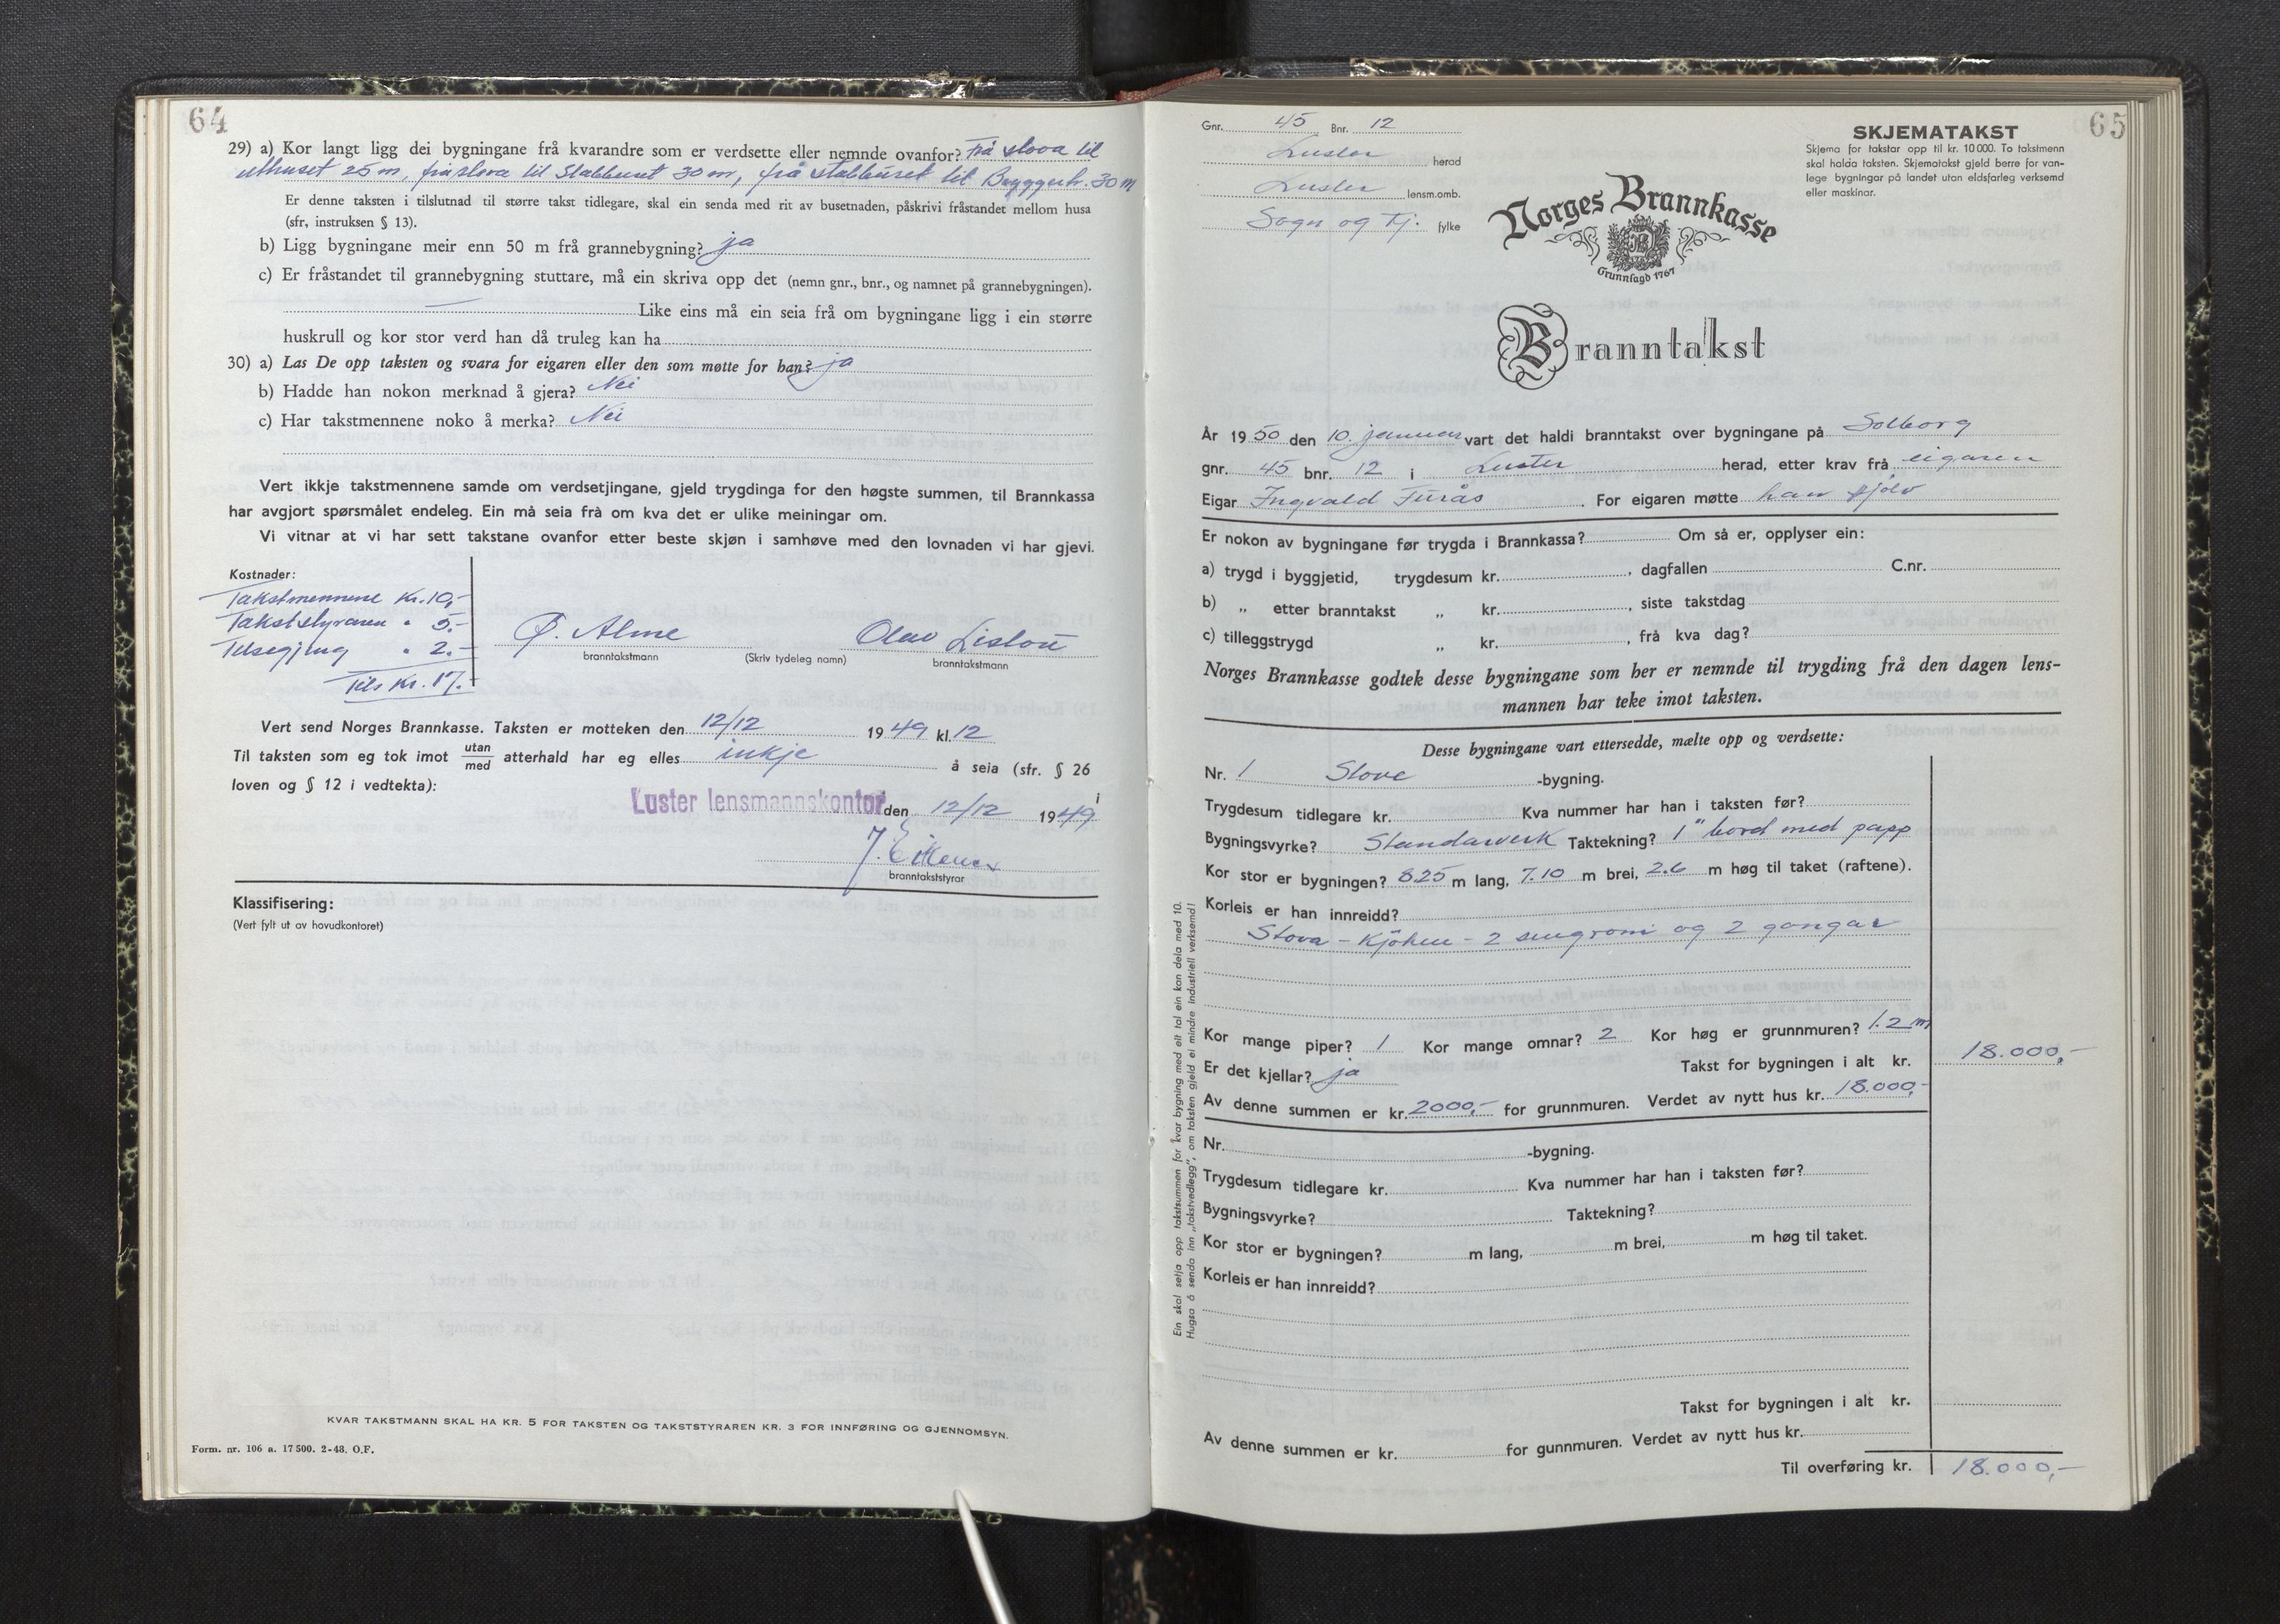 64
29) a) Kor langt ligg dei bygningane frå kvarandre som er verdsette eller nemnde ovanfor? Frå stova til
uthuset 25 m, frå stova til Stabburet 30 m, frå stabburet til Bryggerh. 30 m
Er denne taksten i tilslutnad til større takst tidlegare, skal ein senda med rit av busetnaden, påskrivi fråstandet mellom husa
(sfr, instruksen § 13).
b) Ligg bygningane meir enn 50 m frå grannebygning? ja
c) Er fråstandet til grannebygning stuttare, må ein skriva opp det (nemn gnr., bnr., og namnet på grannebygningen).
— Like eins må ein seia frå om bygningane ligg i ein større
huskrull og kor stor verd han då truleg kan ha
30) a) Las De opp taksten og svara for eigaren eller den som møtte for han? ja
b) Hadde han nokon merknad å gjera? Nei
c) Har takstmennene noko å merka? Nei
Vert ikkje takstmennene samde om verdsetjingane, gjeld trygdinga for den høgste summen, til Brannkassa
har avgjort spørsmålet endeleg. Ein må seia frå om kva det er ulike meiningar om.
Vi vitnar at vi har sett takstane ovanfor etter beste skjøn i samhøve med den lovnaden vi har gjevi.
Kostnader:
Takstmennene kr. 10,-
Takststyraren " 5.-
Tilsegjing " 2.-
Tils kr. 17.-
Ø. Alme Olav
branntakstmann (Skriv tydeleg namn) branntakstmann
Vert send Norges Brannkasse. Taksten er motteken den 12/12 1949 kl. 12
Til taksten som eg tok imot utan/med atterhald har eg elles inkje å seia (sfr. § 26
loven og § 12 i vedtekta):
Luster lensmannskontor i
den 12/12 1949
J.
branntakststyrar
Klassifisering:
(Vert fylt ut av hovudkontoret)
KVAR TAKSTMANN SKAL HA KR. 5 FOR TAKSTEN OG TAKSTSTYRAREN KR. 3 FOR INNFØRING OG GJENNOMSYN.
Form. nr. 106 a. 17 500. 2-48. O.F.
65
Gnr. 45 Bnr. 12
Luster herad
Luster lensm.omb.
Sogn og Fj. fylke
SKJEMATAKST
Skjema for takstar opp til kr. 10 000. To takstmenn
skal halda taksten. Skjematakst gjeld berre for van-
lege bygningar på landet utan eldsfarleg verksemd
eller maskinar.
Norges Brannkasse
Grunnlagd 1767
Branntakst
År 1950 den 10. januar vart det haldi branntakst over bygningane på Solborg
gnr. 45 bnr. 12 i Luster herad, etter krav frå eigaren
Eigar Ingvald Furås. For eigaren møtte han sjölv
Er nokon av bygningane før trygda i Brannkassa? Om så er, opplyser ein:
a) trygd i byggjetid, trygdesum kr. , dagfallen C.nr.
b) „ etter branntakst „ kr. , siste takstdag
c) tilleggstrygd „ kr. , frå kva dag?
Norges Brannkasse godtek desse bygningane som her er nemnde til trygding frå den dagen lens-
mannen har teke imot taksten.
Desse bygningane vart ettersedde, mælte opp og verdsette:
Nr. 1 Stove -bygning.
Trygdesum tidlegare kr. Kva nummer har han i taksten før?
Bygningsvyrke? Standarverk Taktekning? 1" bord med papp
Kor stor er bygningen? 8.25 m lang, 7.10 m brei, 2.6 m høg til taket (raftene).
Korleis er han innreidd?
Stova - Kjöken - 2 sengrom og 2 gangar
Kor mange piper? 1 Kor mange omnar? 2 Kor høg er grunnmuren? 1.2 m
Er det kjellar? ja Takst for bygningen i alt kr. 18.000,-
Av denne summen er kr. 2000,- for grunnmuren. Verdet av nytt hus kr. 18.000,-
Nr. -bygning.
Trygdesum tidlegare kr. Kva nummer har han i taksten før?
Bygningsvyrke? Taktekning?
Kor stor er bygningen? m lang, m brei, m høg til taket.
Korleis er han innreidd?
Takst for bygningen i alt kr.
Av denne summen er kr. for gunnmuren. Verdet av nytt hus kr.
Til overføring kr. 18.000,-
Ein skal setja opp takstsummen for kvar bygning med eit tal ein kan dela med 10.
Hugsa å senda inn „takstvedlegg", om taksten gjeld ei mindre industriell verksemd!